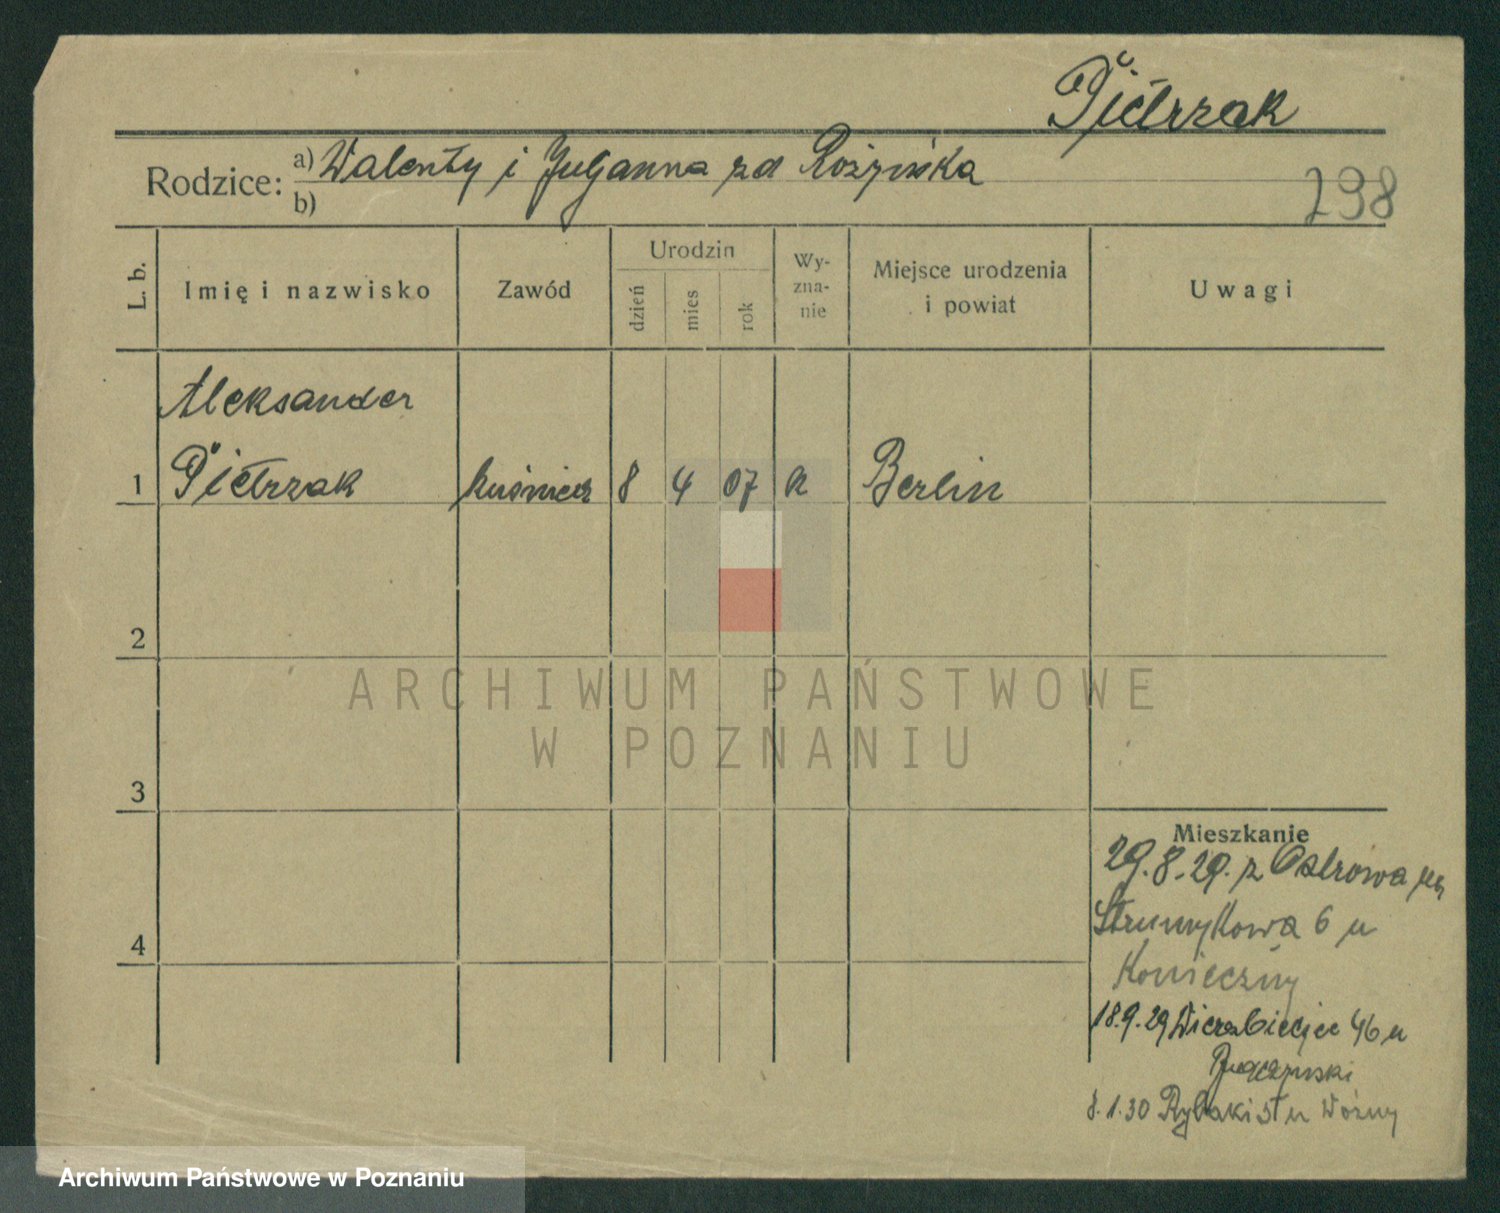 Pietrzak
Rodzice: a) Walenty i Juljanna zd Rożyńska
b)
298
L. b.
Imię i nazwisko
Zawód
Urodzin
dzień
mies
rok
Wy-
zna-
nie
Miejsce urodzenia
i powiat
Uwagi
Aleksander
1 Pietrzak kuśnierz 8 4 07 R Berlin
2
3
4
ARCHIWUM PAŃSTWOWE
W POZNANIU
Mieszkanie
29.8.29. z Ostrowa
Strumykowa 6 u
Konieczny
18.9.29 Wierzbięcice 46 u
8.1.30 Rybaki u Woźny
Archiwum Państwowe w Poznaniu